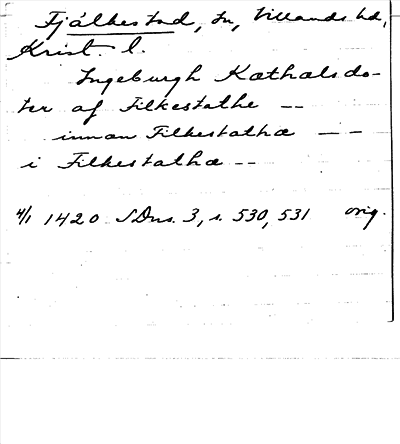 Fjälkestad, sn, Villands hd,
Krist. l.
Ingeburgh Kathalsdo-
ter af Filkestathe --
innan Filkestatha — -
i Filkestatha --
4/1 1420 SDns. 3, s. 530, 531 orig.